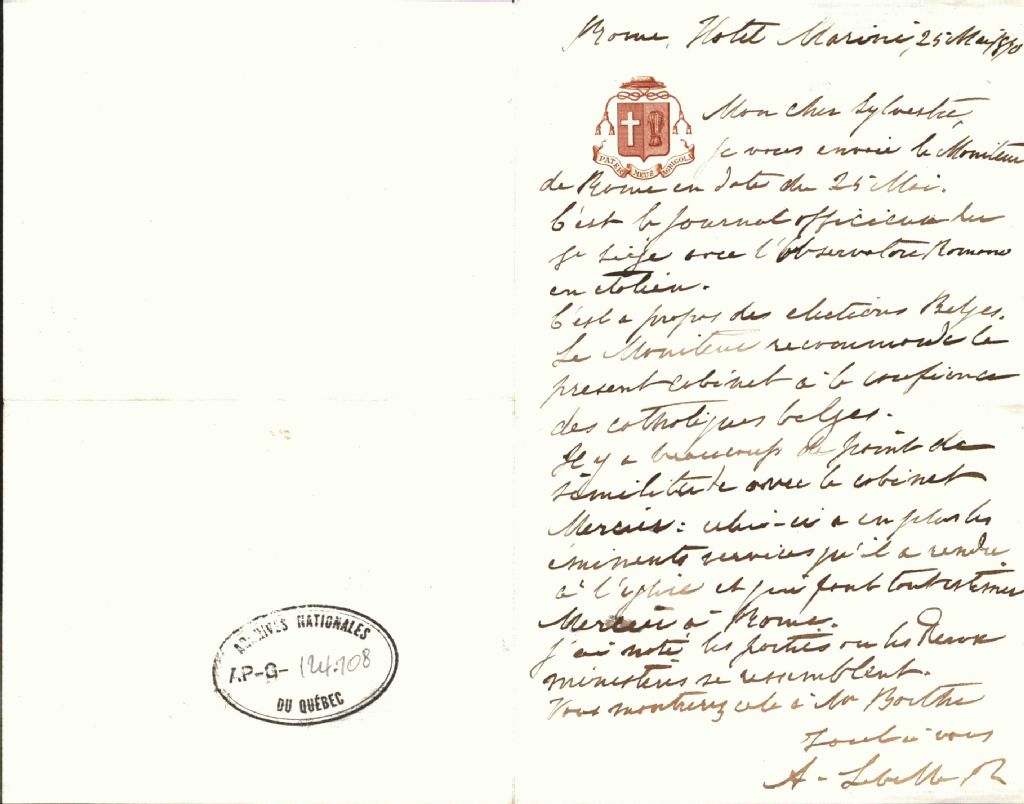 ARCHIVES NATIONALES
AP-G- 124.108
DU QUÉBEC
Rome, Hotel Marini, 25 Mai 1890
Mon cher Sylvestre,
PATER MEUS AGRICOLA
Je vous envoie le Moniteur
de Rome en date du 25 Mai.
C'est le journal officieux du
St Siège avec l'Observatore Romano
en italien.
C'est a propos des elections Belges.
Le Moniteur recommande le
present cabinet à la confience
des catholiques belges.
Il y a beaucoup de point de
similitude avec le cabinet
Mercier: celui-ci a en plus les
éminents services qu'il a rendu
à l'église et qui font tout estimer
Mercier à Rome.
J'ai noté les parties ou les Deux
ministères se ressemblent.
Vous montrerez cela à Mr Boethe
Tout à vous
A. Labelle